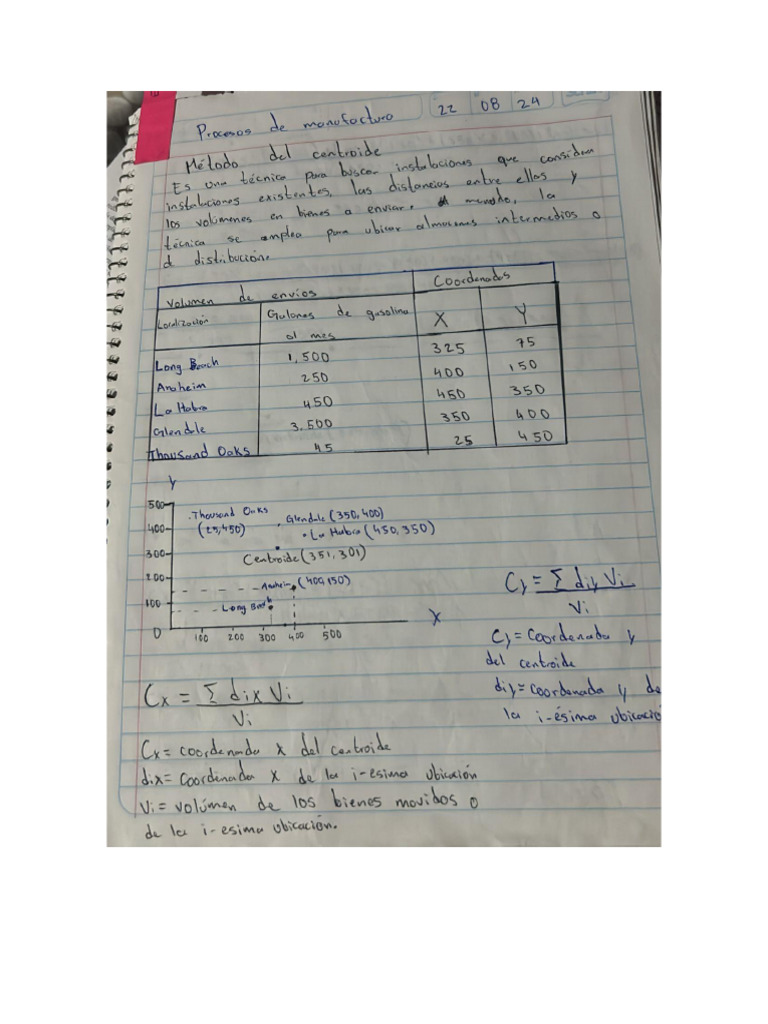 22 08 24
Procesos de manofactura
Método del centroide
Es una técnica para buscar instalaciones que consideran
instalaciones existentes, las distancias entre ellas y
los volúmenes en bienes a enviar. A menudo, la
técnica se emplea para ubicar almacenes intermedios o
d distribución.
Volumen de envíos Coordenadas
Localización Galones de gasolina al mes X Y
Long Beach 1,500 325 75
Anaheim 250 400 150
La Habra 450 450 350
Glendale 3.500 350 400
Thousand Oaks 45 25 450
Y
500
400
300
200
100
0
Thousand Oaks
(25,450)
Glendale (350,400)
La Habra (450,350)
Centroide (351,301)
Anaheim (400,150)
Long Beach
100 200 300 400 500
X
Cy = Σ diy Vi
Vi
Cy = Coordenada y
del centroide
diy = coordenada y de
la i-ésima ubicació
Cx = Σ dix Vi
Vi
Cx = coordenada x del centroide
dix = Coordenada x de la i-esima ubicación
Vi = volúmen de los bienes movidos o
de la i-esima ubicación.